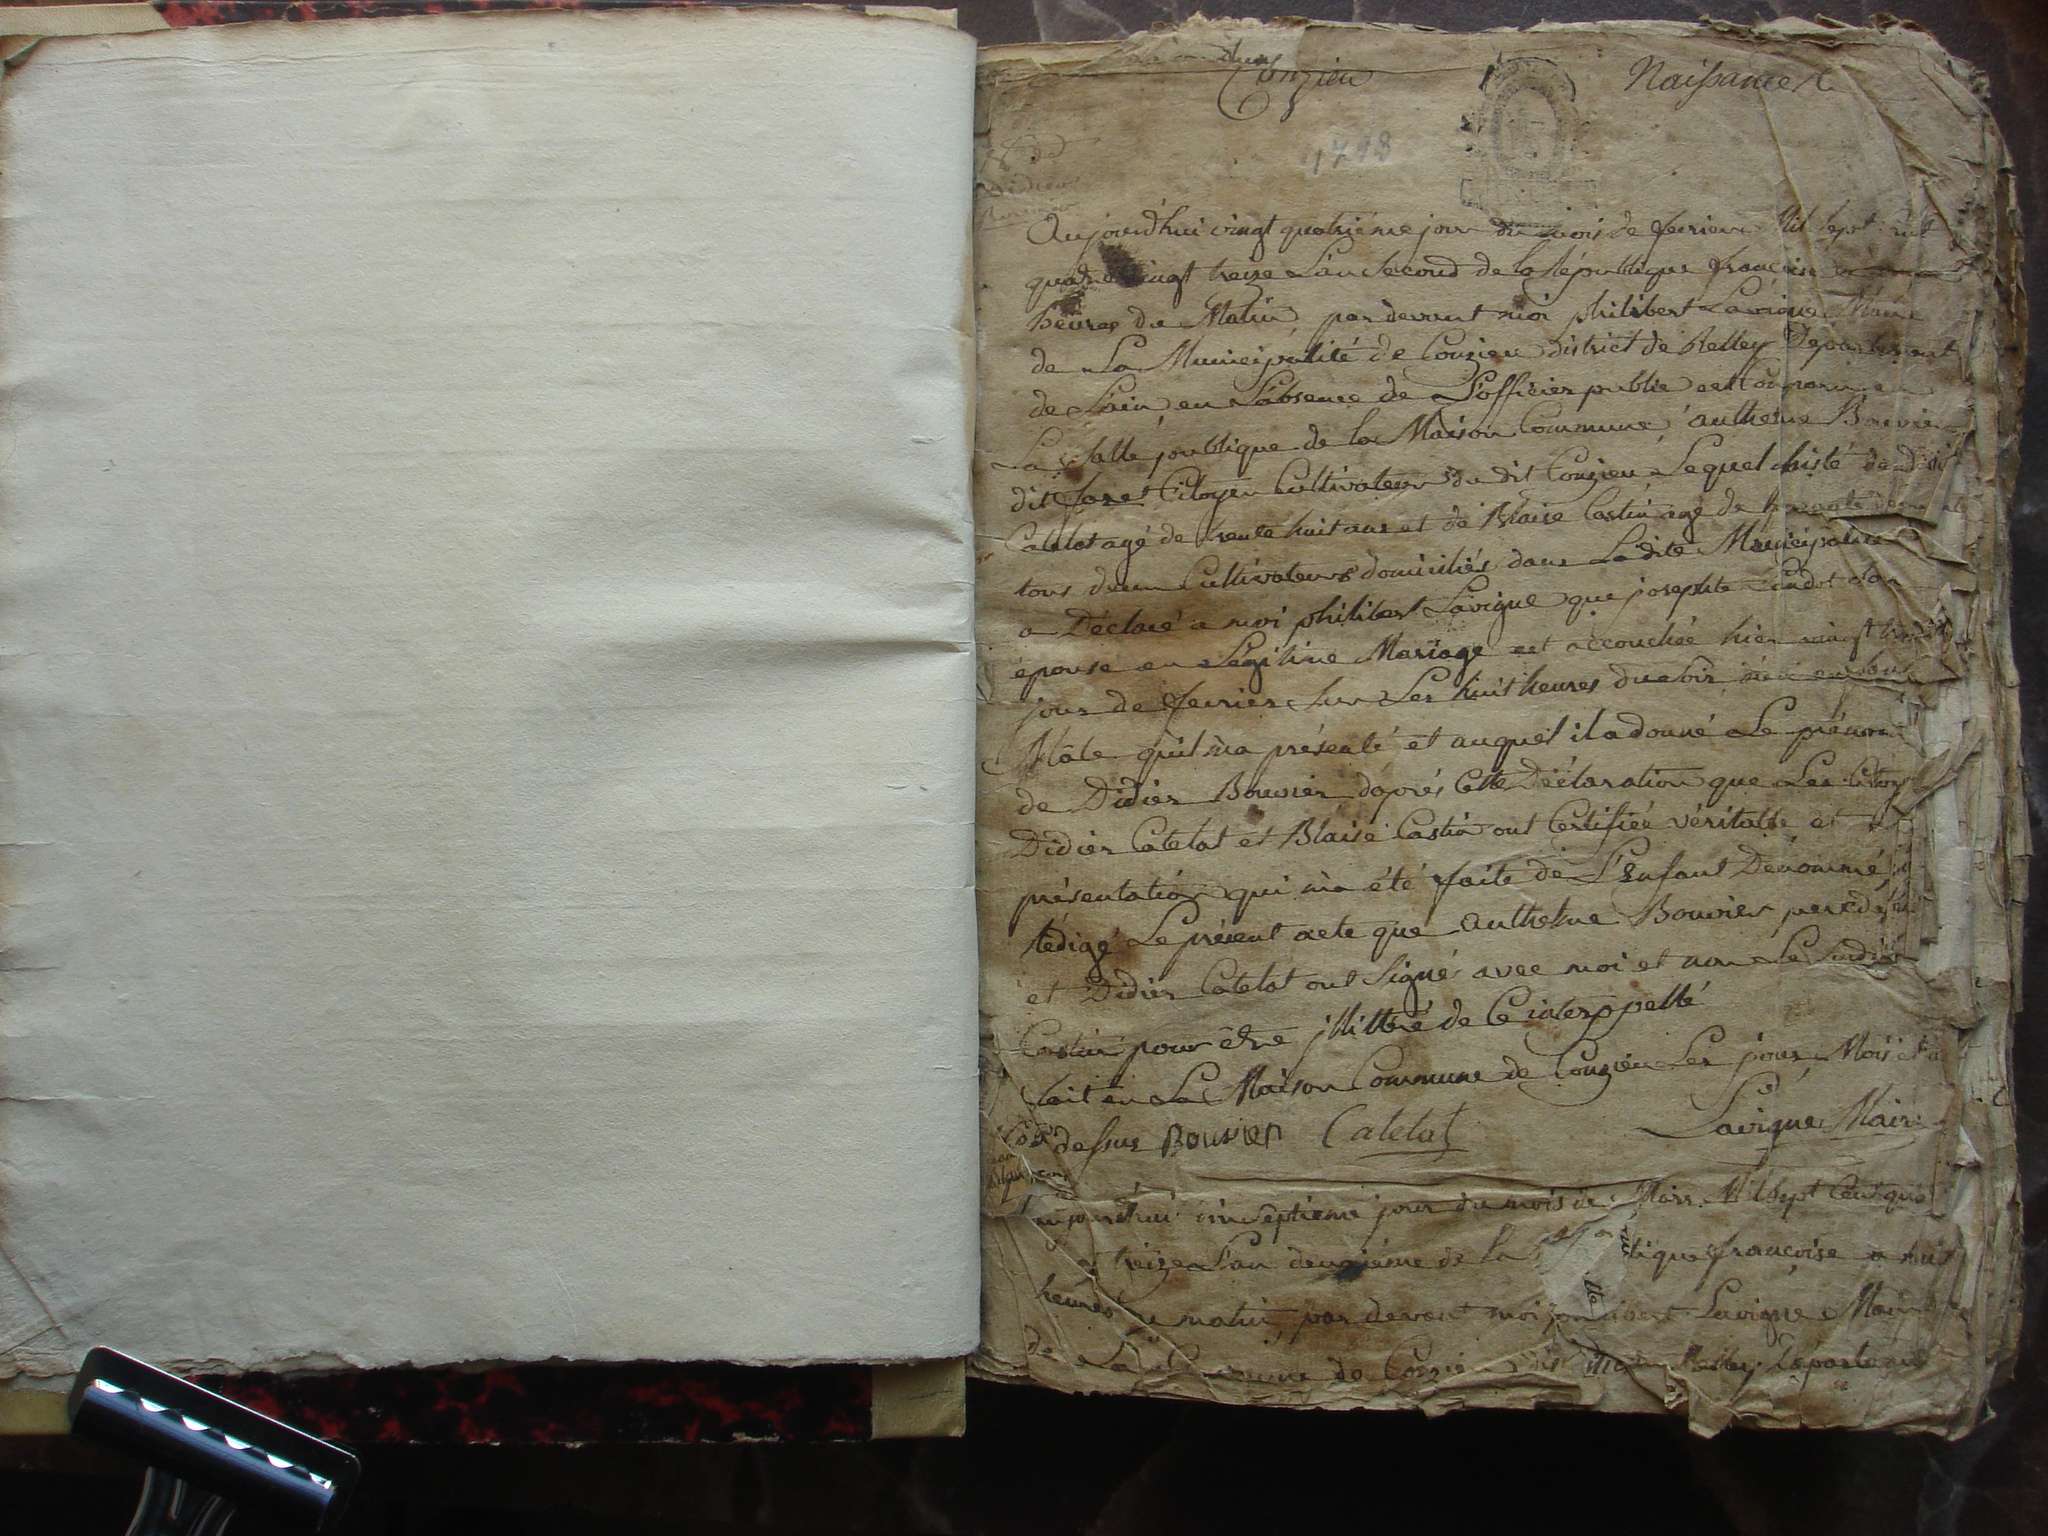 Conzieu Naissances
1793
Aujourdhui vingt quatriéme jour du mois de fevrier Mil sept cent
quatre vingt treize L'an Second de la République françoise
heures du Matin, par devant moi philibert Lavigne Maire
de La Municipalité de Conzieu district de Belley Département
de L'ain, en L'absence de L'officier public est comparu en
La Salle publique de la Maison Commune anthelme Bouvier
dit Citoyen Cultivateur du dit Conzieu, Lequel assisté de Didier
Catelat agé de trente huit ans et de Blaise Castin agé de
tous deux Cultivateurs domiciliés dans La dite Municipalité
a Déclaré a moi philibert Lavigne que josephte son
épouse en Légitime Mariage est accouchée hier vingt trois
jour de fevrier sur Les huit heures du soir
Mâle qu'il m'a présenté et auquel il a donné Le prénom
de Didier Bouvier daprés Cette Déclaration que Les Citoyens
Didier Catelat et Blaise Castin ont Certifiée véritable et
présentation qui m'a été faite de L'Enfant Dénommé
Rédigé Le présent acte que anthelme Bouvier pere de
et Didier Catelat ont Signés avec moi et non Le
Castin pour être illittré de Ce interppellé
fait en La Maison Commune de Conzieu Les jour, Mois et
dessus Bouvier Catelat Lavigne Maire
aujourdhui septieme jour du mois de Mars Mil Sept Cent
treize L'an deuxiéme de la françoise a huit
heures matin, par devant moi Lavigne Maire
de La de Conzieu Belley Département